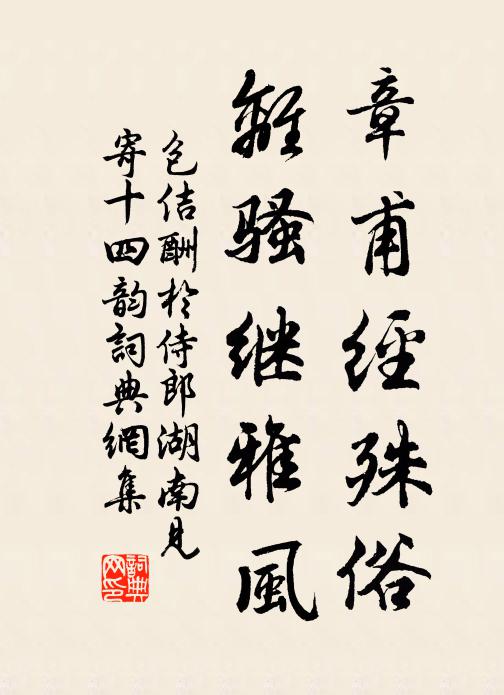 章甫經殊俗
離骚继雅風
包佶酬於侍郎湖南見
寄十四韵詞典網集
詞典网印